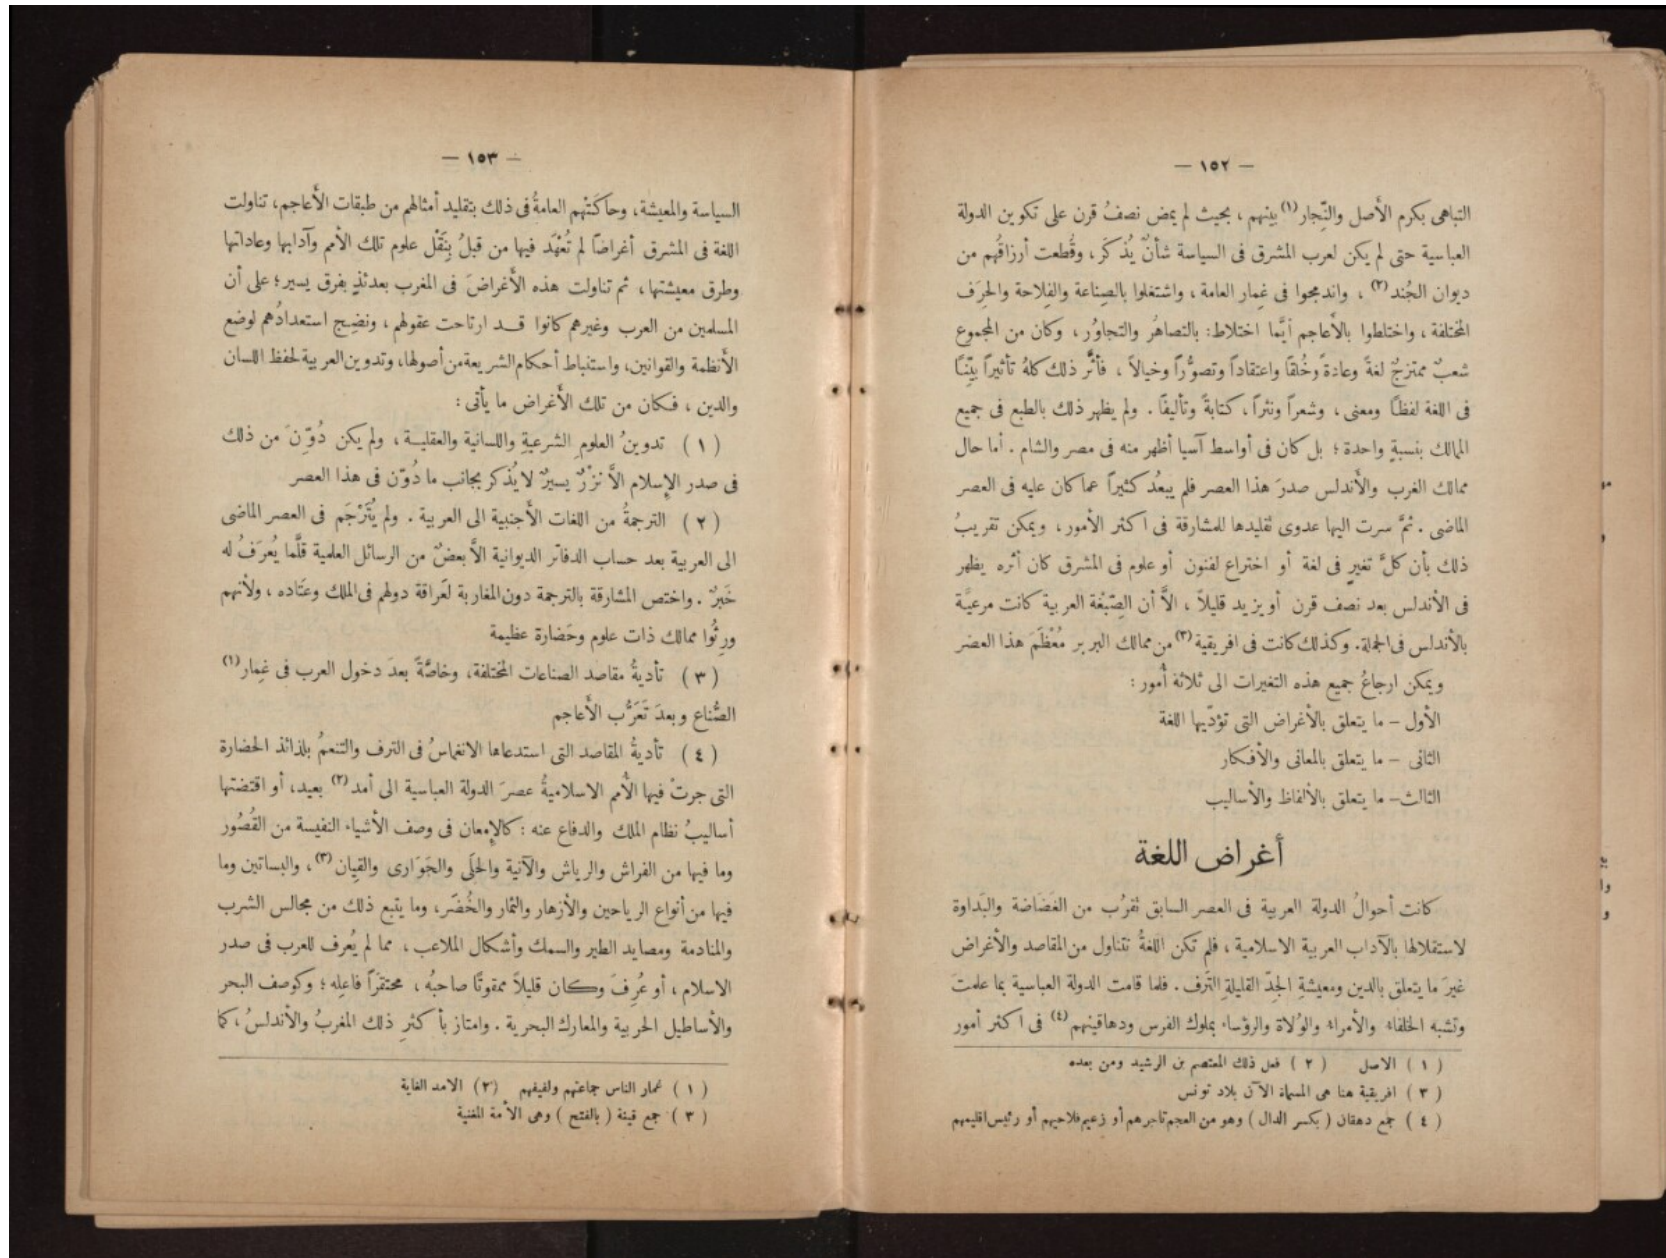 — ١٥٢ —
التباهى بكرم الأَصل والنِّجار(١) بينهم ، بحيث لم يمض نصفُ قرن على تكوين الدولة
العباسية حتى لم يكن لعرب المشرق فى السياسة شأنٌ يُذكَر ، وقُطعت أرزاقُهم من
ديوان الجُند(٢) ، واندمجوا فى غِمار العامة ، واشتغلوا بالصِناعة والفِلاحة والحِرَف
المختلفة ، واختلطوا بالأَعاجم أيَّما اختلاط: بالتصاهُر والتجاوُر ، وكان من المجموع
شعبٌ ممتزجٌ لغةً وعادةً وخُلقًا واعتقاداً وتصوُّراً وخيالاً ، فأثَّر ذلك كلهُ تأثيراً بيِّنًا
فى اللغة لفظًا ومعنى ، وشعراً ونثراً ، كتابةً وتأليفًا . ولم يظهر ذلك بالطبع فى جميع
الممالك بنسبةٍ واحدة ؛ بل كان فى أواسط آسيا أظهر منه فى مصر والشام . أما حال
ممالك الغرب والأَندلس صدرَ هذا العصر فلم يبعُد كثيراً عما كان عليه فى العصر
الماضى . ثمَّ سرت اليها عدوى تقليدها للمشارقة فى اكثر الأمور ، ويمكن تقريبُ
ذلك بأن كلَّ تغيرٍ فى لغة أو اختراع لفنون أو علوم فى المشرق كان أثره يظهر
فى الأندلس بعد نصف قرن أو يزيد قليلاً ، الاَّ أن الصِّبْغة العربية كانت مرعيَّة
بالأندلس فى الجملة. وكذلك كانت فى افريقية(٣) من ممالك البربر مُعْظَمَ هذا العصر
ويمكن ارجاعُ جميع هذه التغيرات الى ثلاثة أُمور :
الأول – ما يتعلق بالأَغراض التى تؤدّيها اللغة
الثانى – ما يتعلق بالمعانى والأفكار
الثالث– ما يتعلق بالألفاظ والأساليب
أغراض اللغة
كانت أحوالُ الدولة العربية فى العصر السابق تقرُب من الغَضَاضة والبَداوة
لاستقلالها بالآداب العربية الاسلامية ، فلم تكن اللغةُ تتناول من المقاصد والأغراض
غيرَ ما يتعلق بالدين ومعيشةِ الجِدّ القليلةِ التَّرف . فلما قامت الدولة العباسية بما علمتَ
وتشبه الخلفاء والأمراء والوُلاة والرؤساء بملوك الفرس ودهاقينهم(٤) فى اكثر أمور
( ١ ) الاصل ( ٢ ) فعل ذلك المعتصم بن الرشيد ومن بعده
( ٣ ) افريقية هنا هى المسماة الآن بلاد تونس
( ٤ ) جمع دهقان ( بكسر الدال ) وهو من العجم تاجرهم أو زعيم فلاحيهم أو رئيس اقليمهم
— ١٥٣ —
السياسة والمعيشة، وحاكَتْهم العامةُ فى ذلك بتقليد أمثالهم من طبقات الأَعاجم، تناولت
اللغة فى المشرق أغراضًا لم تُعْهَد فيها من قبلُ بِنَقْل علوم تلك الأمم وآدابها وعاداتها
وطرق معيشتها ، ثم تناولت هذه الأَغراضَ فى المغرب بعدئذٍ بفرق يسير؛ على أن
المسلمين من العرب وغيرهم كانوا قد ارتاحت عقولهم ، ونضِج استعدادُهم لوضع
الأَنظمة والقوانين، واستنباط أحكام الشريعة من أصولها، وتدوين العربية لحفظ اللسان
والدين ، فكان من تلك الأَغراض ما يأتى :
( ١ ) تدوينُ العلومِ الشرعيةِ واللسانية والعقلية ، ولم يكن دُوِّنَ من ذلك
فى صدر الإسلام الاَّ نزْرٌ يسيرٌ لا يُذكر بجانب ما دُوّن فى هذا العصر
( ٢ ) الترجمةُ من اللغات الأَجنبية الى العربية . ولم يُتَرْجَم فى العصر الماضى
الى العربية بعد حساب الدفاتر الديوانية الاَّ بعضٌ من الرسائل العلمية قلَّما يُعرَفُ له
خَبرٌ . واختص المشارقة بالترجمة دون المغاربة لعَراقة دولهم فى الملك وعَتَاده ، ولأنهم
ورِثُوا ممالك ذات علوم وحَضارة عظيمة
( ٣ ) تأديةُ مقاصد الصناعات المختلفة، وخاصَّةً بعدَ دخول العرب فى غِمار(١)
الصُّناع وبعدَ تَعَرُّب الأَعاجم
( ٤ ) تأديةُ المقاصد التى استدعاها الانغماسُ فى الترف والتنعمُ بلذائذ الحضارة
التى جرتْ فيها الأُمم الاسلاميةُ عصرَ الدولة العباسية الى أمد(٢) بعيد، أو اقتضتها
أساليبُ نظام الملك والدفاع عنه : كالإمعان فى وصف الأشياء النفيسة من القُصُور
وما فيها من الفراش والرياش والآنية والحلَى والجَوَارى والقِيان(٣) ، والبساتين وما
فيها من أنواع الرياحين والأزهار والثمار والخُضَر، وما يتبع ذلك من مجالس الشرب
والمنادمة ومصايد الطير والسمك وأشكال الملاعب ، مما لم يُعرف للعرب فى صدر
الاسلام ، أو عُرِفَ وكان قليلاً ممقوتًا صاحبُه ، محتقراً فاعِله ؛ وكوصف البحر
والأساطيل الحربية والمعارك البحرية . وامتاز بأكثرِ ذلك المغربُ والأندلسُ، كما
( ١ ) غمار الناس جماعتهم ولفيفهم (٢) الامد الغاية
( ٣ ) جمع قينة ( بالفتح ) وهى الأمة المغنية